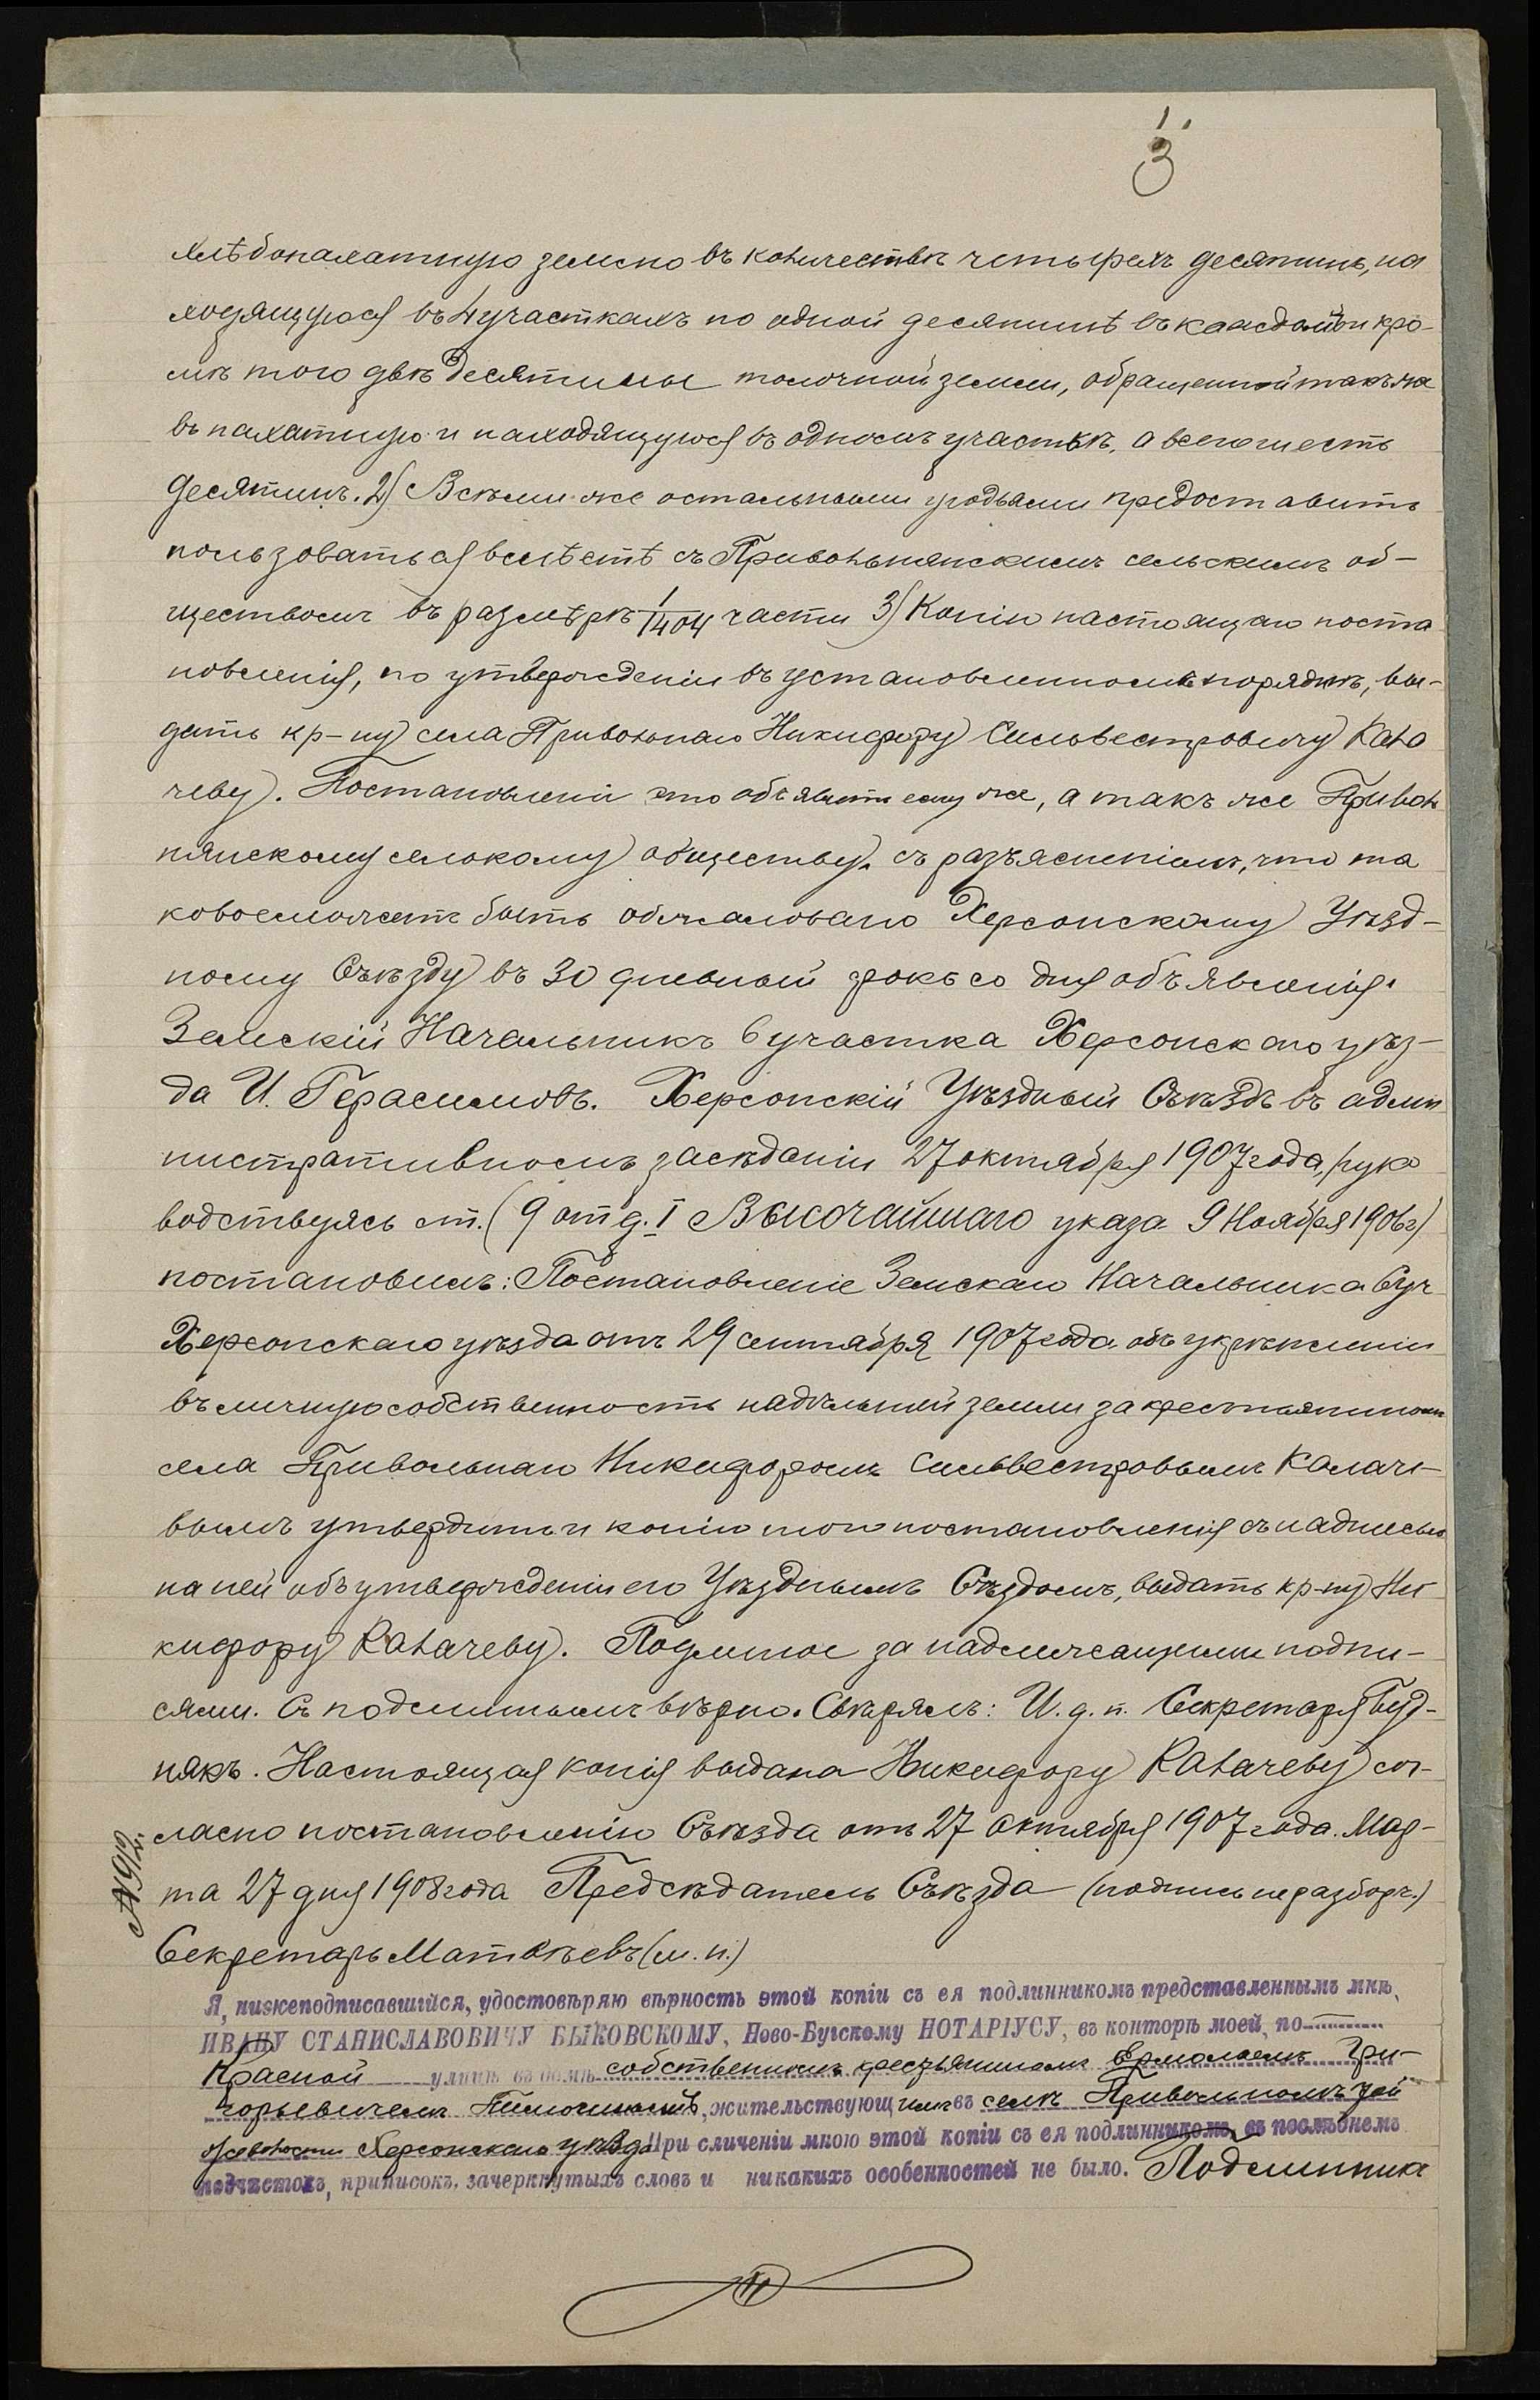 3
хлѣбопахатную землю въ количествѣ четырехъ десятинъ, на
ходящуюся въ 4 участкахъ по одной десятинѣ въ каждомъ и кро-
мѣ того двѣ десятины толочной земли, обращенной такъ же
въ пахатную и находящуюся въ одномъ участкѣ, а всего шесть
десятинъ. 2) Всѣми же остальными угодьями предоставить
пользоваться вмѣстѣ съ Привольнянскимъ сельскимъ об-
ществомъ въ размѣрѣ 1/1404 части 3) Копію настоящаго поста
новленія, по утвержденіи въ установленномъ порядкѣ, вы-
дать кр-ну села Привольнаго Никифору Сильвестровичу Кала
чеву. Постановленіе это объявить ему же, а такъ же Приволь
нянскому сельскому обществу съ разъясненіемъ, что та
ковое можетъ быть обжаловано Херсонскому Уѣзд-
ному Съѣзду въ 30 дневный срокъ со дня объявленія.
Земскій Начальникъ 6 участка Херсонскаго уѣз-
да И. Герасимовъ. Херсонскій Уѣздный Съѣздъ въ адми
нистративномъ засѣданіи 27 октября 1907 года, руко
водствуясь ст. (9 отд. I Высочайшаго указа 9 Ноября 1906 г)
постановилъ: Постановленіе Земскаго Начальника 6 уч
Херсонскаго уѣзда отъ 29 сентября 1907 года объ укрѣпленіи
въ личную собственность надѣльной земли за крестьяниномъ
села Привольнаго Никифоромъ Сильвестровымъ Калаче-
вымъ утвердить и копію того постановленія съ надписью
на ней объ утвержденіи его Уѣзднымъ Съѣздомъ, выдать кр-ну Ни
кифору Калачеву. Подлинное за надлежащими подпи-
сями. Съ подлиннымъ вѣрно. Свѣрялъ: И. д. п. Секретаря Буд-
някъ. Настоящая копія выдана Никифору Калачеву сог-
ласно постановленію Съѣзда отъ 27 октября 1907 года. Мар-
№ 912.
та 27 дня 1908 года Предсѣдатель Съѣзда (подпись неразборч.)
Секретарь Матвѣевъ (м. п.)
Я, нижеподписавшійся, удостовѣряю вѣрность этой копіи съ ея подлинникомъ представленнымъ мнѣ,
ИВАНУ СТАНИСЛАВОВИЧУ БЫКОВСКОМУ, Ново-Бугскому НОТАРІУСУ, въ конторѣ моей, по
Красной улицѣ въ домѣ собственномъ крестьяниномъ Ермолаемъ Гри-
горьевичемъ, жительствующимъ въ селѣ Привольномъ той
же волости Херсонскаго уѣзда При сличеніи мною этой копіи съ ея подлинникомъ, въ послѣднемъ
подчистокъ, приписокъ, зачеркнутыхъ словъ и никакихъ особенностей не было. Подлинникъ